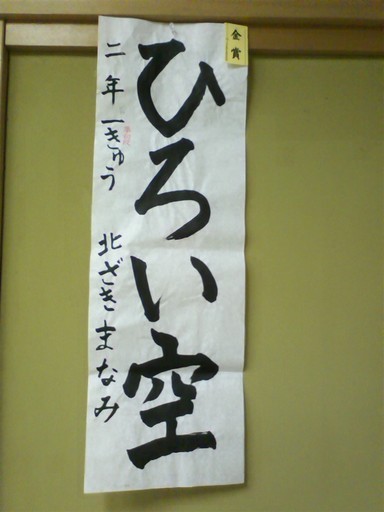 金賞
ひろい空
二年一きゅう 北ざきまなみ